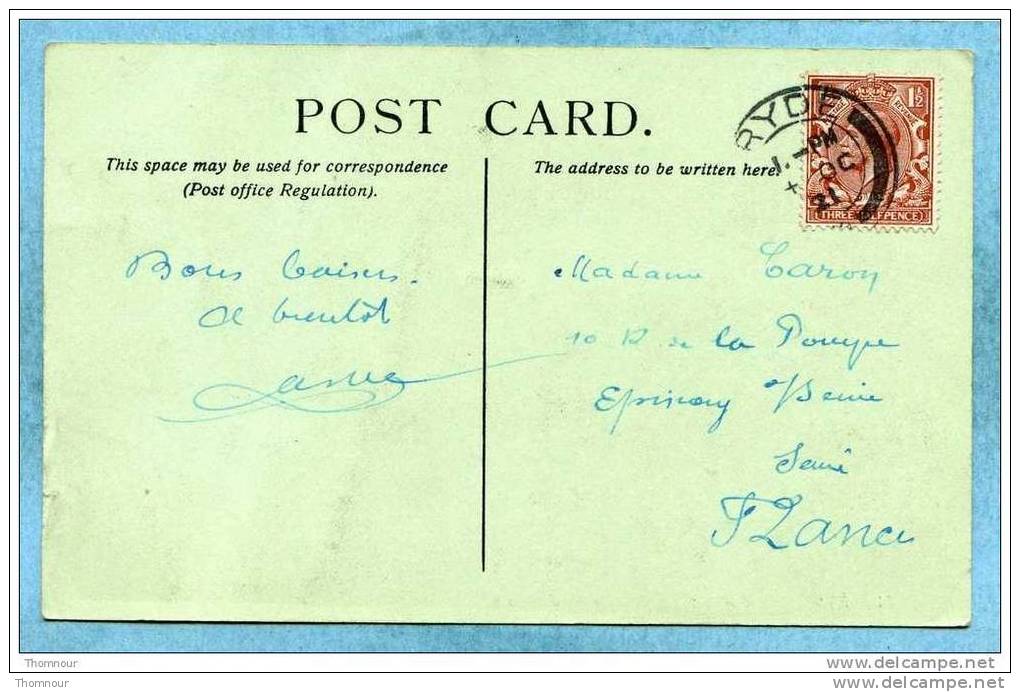 POST CARD.
This space may be used for correspondence
(Post office Regulation).
The address to be written here.
RYDE
PM
OC
21
1½
REVENUE
THREE HALFPENCE
Bons baisers.
A bientôt
Madame Caron
10 R de la Pompe
Epinay s/ Seine
Seine
France
Thomnour
Thomnour
www.delcampe.net
www.delcampe.net